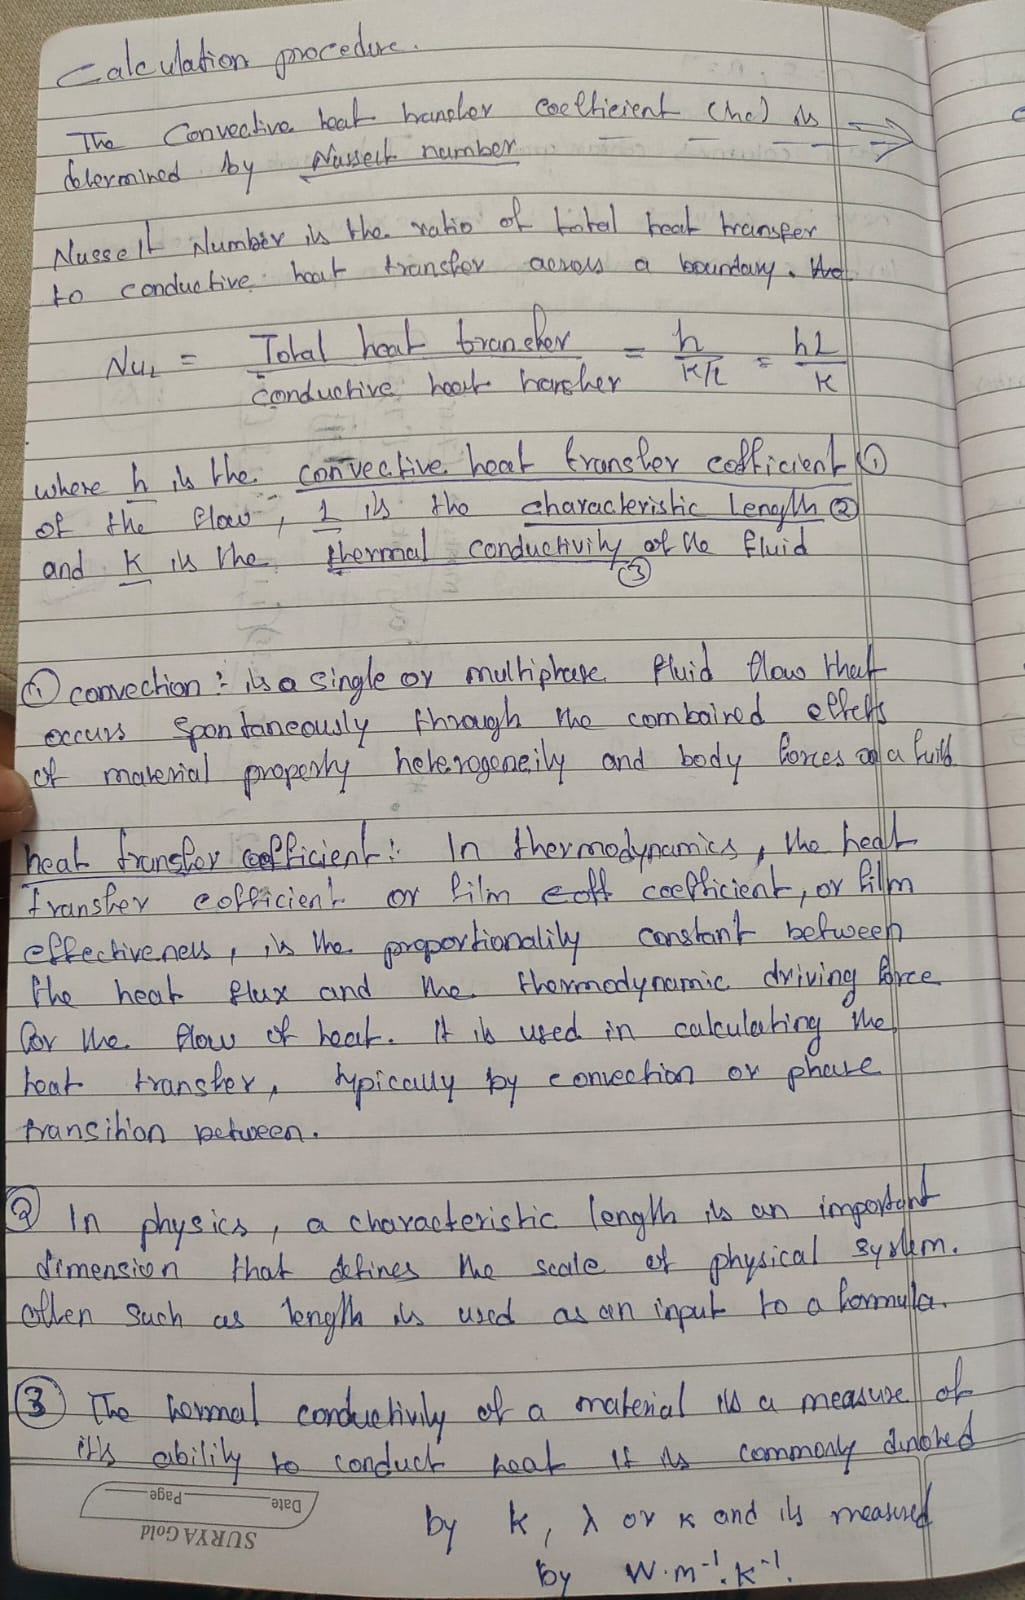 Calculation procedure.
The Convective heat transfer coefficient (hc) is
determined by Nusselt number
Nusselt Number is the ratio of total heat transfer
to conductive heat transfer across a boundary.
NuL = Total heat transfer / conductive heat transfer = h / k/L = hL / k
where h is the convective heat transfer cofficient ①
of the flow, L is the characteristic length ②
and k is the thermal conductivity of the fluid
③
① convection : is a single or multiphase fluid flow that
occurs spontaneously through the combaired effects
of material property heterogeneity and body forces on a fuild
heat transfer cofficient :- In thermodynamics, the heat
transfer cofficient or film coff coefficient, or film
effectiveness, is the proportionality constant between
the heat flux and the thermodynamic driving force
for the flow of heat. It is used in calculating the
heat transfer, typically by convection or phase
transition between.
② In physics, a characteristic length is an important
dimension that defines the scale of physical system.
often such as length is used as an input to a formula.
③ The hormal conductivity of a material is a measure of
it's ability to conduct heat It is commonly denoted
by k, λ or κ and is measured
by W·m⁻¹·K⁻¹.
Date Page
SURYA Gold